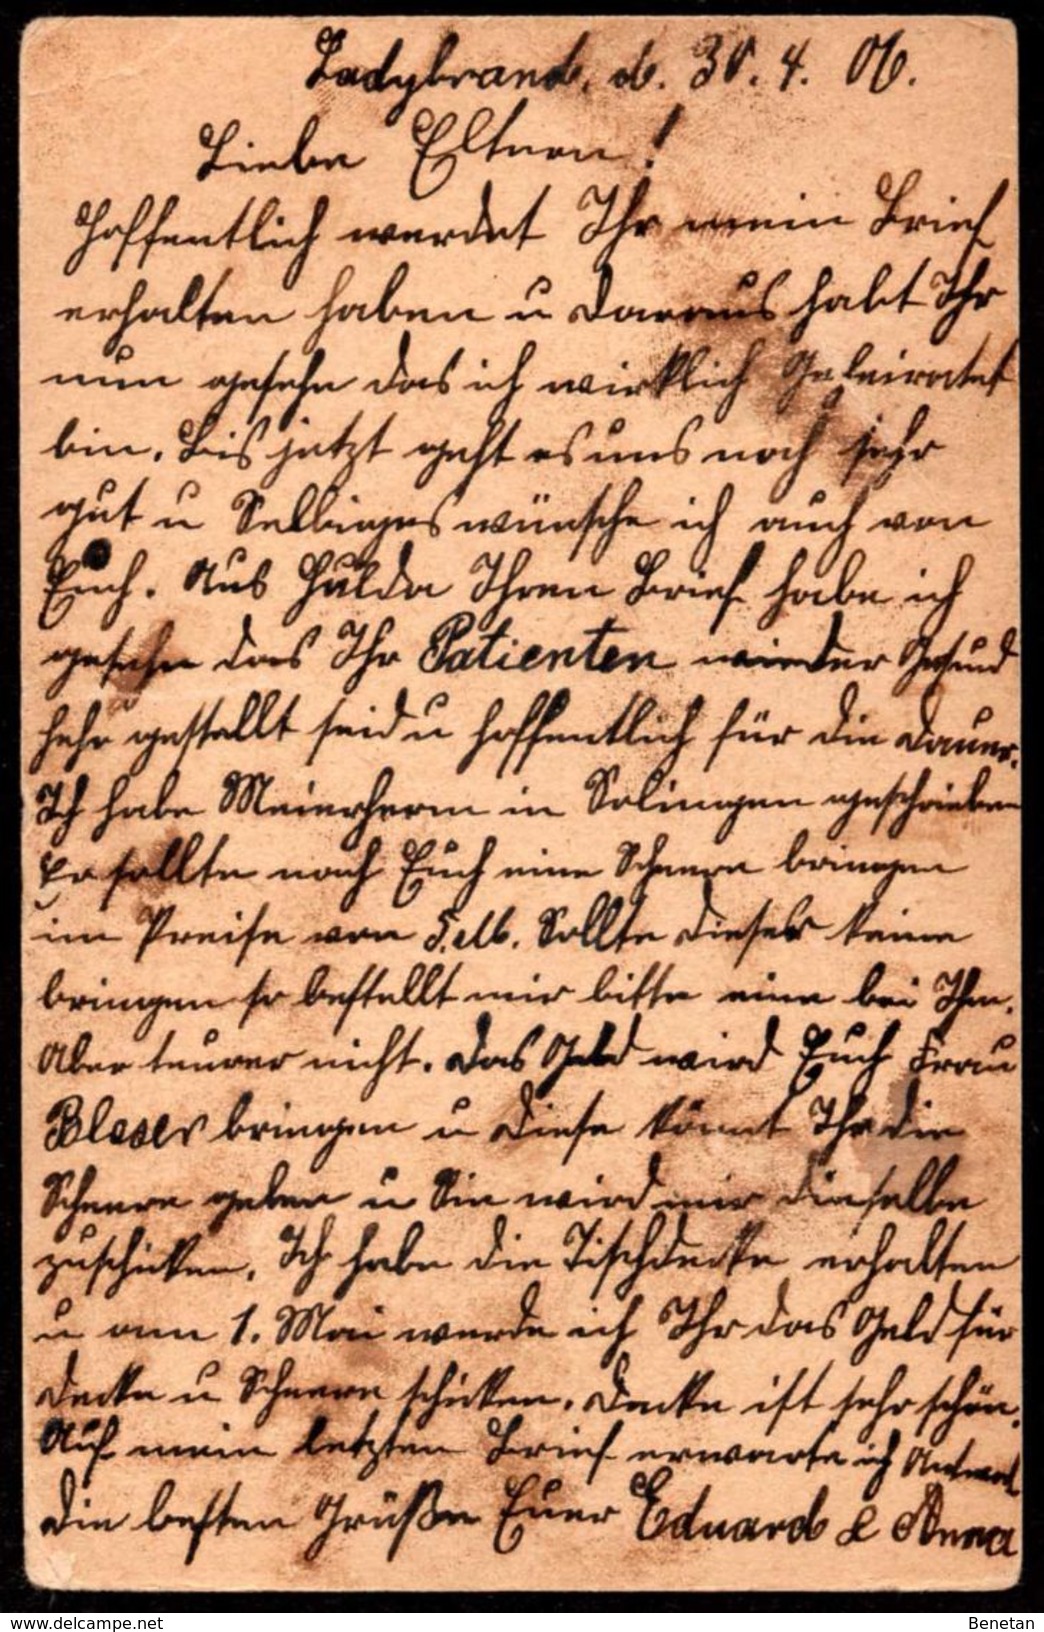 Ladybrand, d. 30. 4. 06.
Liebe Eltern!
Hoffentlich werdet Ihr mein Brief
erhalten haben u daraus habt Ihr
nun gesehn das ich wirklich Geheiratet
bin. Bis jetzt geht es uns noch sehr
gut u Selbiges wünsche ich auch von
Euch. Aus Hulda Ihren Brief habe ich
gesehn das Ihr Patienten wieder Gesund
hehr gestellt seid u hoffentlich für die Dauer.
Ich habe Meierherm in Solingen geschrieben
Er sollte nach Euch eine Scheere bringen
im Preise von 5. M. Sollte dieser keine
bringen so bestellt mir bitte eine bei Ihm.
Aber teurer nicht. Das Geld wird Euch Frau
Blaser bringen u diese könnt Ihr die
Scheere geben u Sie wird mir dieselbe
zuschicken. Ich habe die Tischdecke erhalten
u am 1. Mai werde ich Ihr das Geld für
Decke u Scheere schicken. Decke ist sehr schön.
Auf mein letzten Brief erwarte ich Antwort
Die besten Grüße Euer Eduard & Anna
www.delcampe.net
Benetan